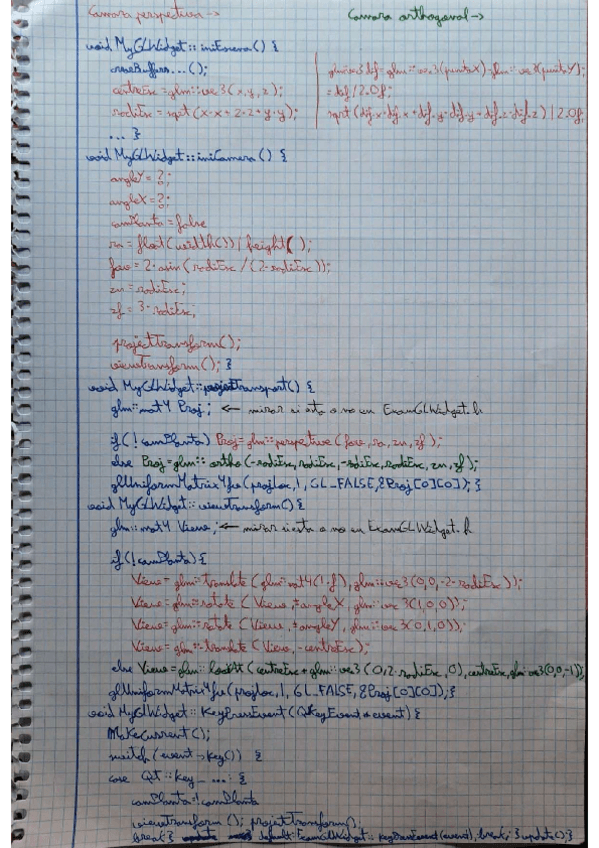 Camara perspectiva ->
Camara orthogonal ->
void MyGLWidget:: iniEscena () {
creaBuffers...();
centreEsc = glm::vec3(x,y,z);
radiEsc = sqrt(x·x + z·z + y·y);
... }
glm::vec3 dif = glm::vec3(puntoX) - glm::vec3(puntoY);
= dif / 2.0f;
sqrt(dif.x·dif.x + dif.y·dif.y + dif.z·dif.z) / 2.0f;
void MyGLWidget:: iniCamera () {
angleY = ?;
angleX = ?;
camPlanta = false
ra = float(width()) / height();
fov = 2·asin(radiEsc / (2·radiEsc));
zn = radiEsc;
zf = 3·radiEsc;
projectTransform();
viewTransform(); }
void MyGLWidget:: projectTransport() {
glm::mat4 Proj; <- mirar si esta o no en ExamGLWidget.h
if(!camPlanta) Proj = glm::perspective (fov, ra, zn, zf);
else Proj = glm::ortho(-radiEsc, radiEsc, -radiEsc, radiEsc, zn, zf);
glUniformMatrix4fv(projLoc, 1, GL_FALSE, &Proj[0][0]); }
void MyGLWidget:: viewTransform() {
glm::mat4 View; <- mirar si esta o no en ExamGLWidget.h
if(!camPlanta) {
View = glm::translate (glm::mat4(1.f), glm::vec3(0,0,-2·radiEsc));
View = glm::rotate (View, +angleX, glm::vec3(1,0,0));
View = glm::rotate (View, +angleY, glm::vec3(0,1,0));
View = glm::translate (View, -centreEsc);
else View = glm::lookAt (centreEsc + glm::vec3 (0, 2·radiEsc, 0), centreEsc, glm::vec3(0,0,-1));
glUniformMatrix4fv(projLoc, 1, GL_FALSE, &Proj[0][0]); }
void MyGLWidget:: KeyPressEvent (QKeyEvent* event) {
MakeCurrent();
switch (event->key()) {
case Qt::Key_...: {
camPlanta = !camPlanta
viewTransform (); projectTransform();
break; } default: ExamGLWidget::keyPressEvent(event); break; } update(); }